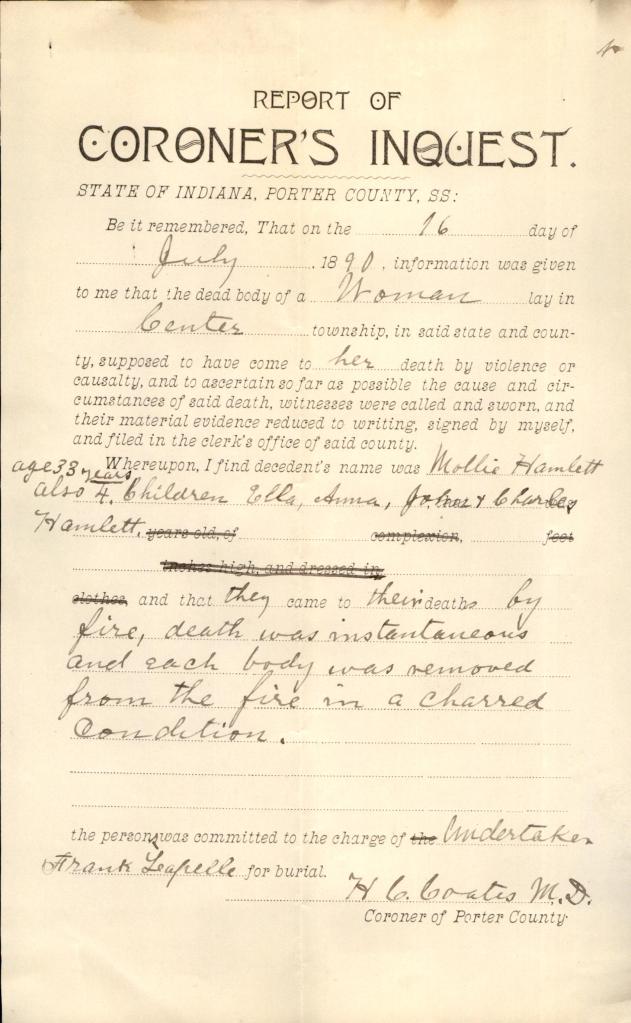 REPORT OF
CORONER'S INQUEST.
STATE OF INDIANA, PORTER COUNTY, SS:
Be it remembered, That on the 16 day of
July 1890, information was given
to me that the dead body of a Woman lay in
Center township, in said state and coun-
ty, supposed to have come to her death by violence or
causalty, and to ascertain so far as possible the cause and cir-
cumstances of said death, witnesses were called and sworn, and
their material evidence reduced to writing, signed by myself,
and filed in the clerk's office of said county.
Whereupon, I find decedent's name was Mollie Hamlett
age 33 years
also 4. Children Ella, Anna, John & Charley
Hamlett, years old, of complexion, feet
inches high, and dressed in
clothes, and that they came to their deaths by
fire, death was instantaneous
and each body was removed
from the fire in a charred
Condition.
the persons was committed to the charge of the Undertaker
Frank Lapelle for burial.
H C. Coates M.D.
Coroner of Porter County